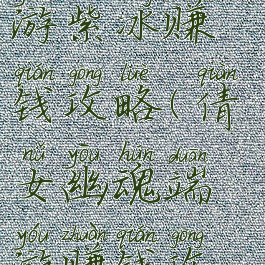 游紫冰赚
qián gōng lüè qiàn
钱攻略(倩
nǚ yōu hún duān
女幽魂端
yóu zhuàn qián gōng
游赚钱攻